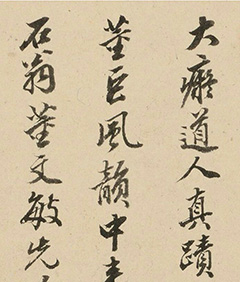 大癡道人真蹟
董巨風韻中
石翁董文敏先